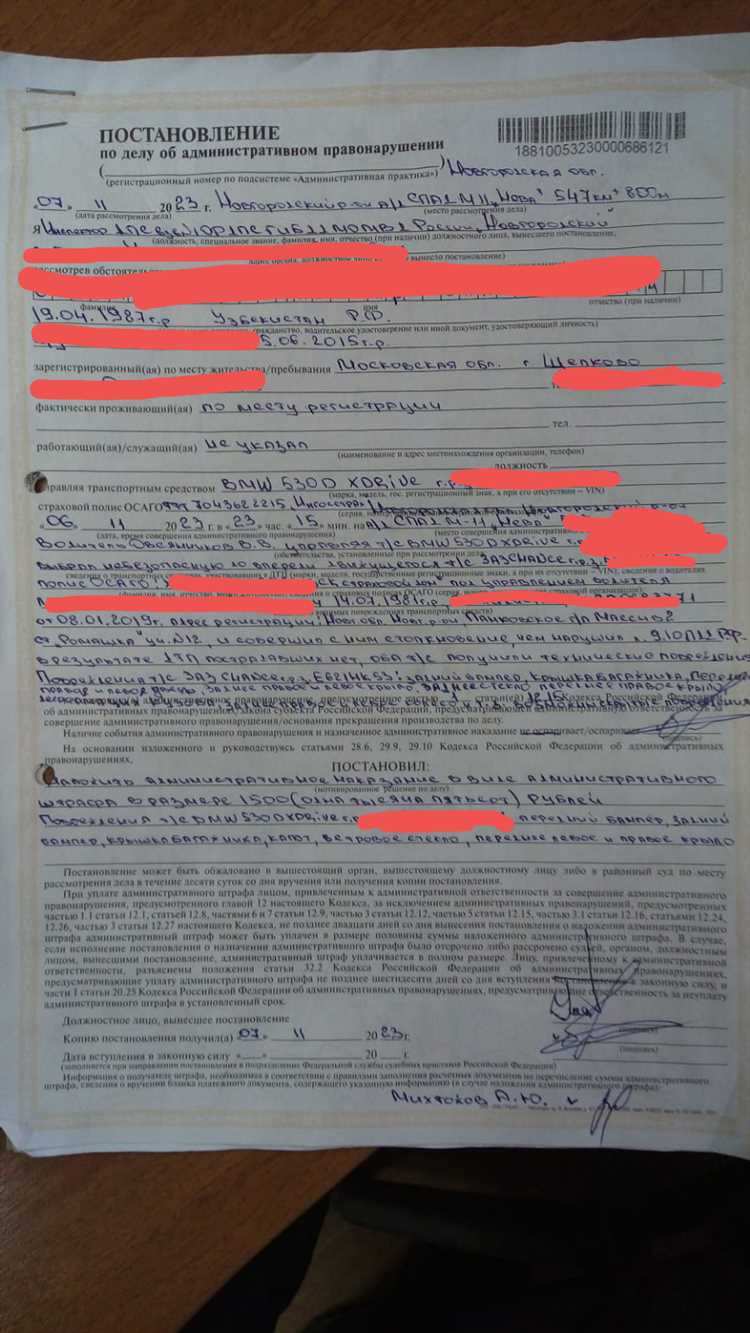 ПОСТАНОВЛЕНИЕ
по делу об административном правонарушении
18810053230000686121
(регистрационный номер по подсистеме «Административная практика») Новгородская обл.
"07" 11 2023 г. Новгородский р-он а/д СПАД М11 „Нева" 547км 800м
(дата рассмотрения дела) (место рассмотрения дела)
Я Инспектор России, Новгородский
(должность, специальное звание, фамилия, имя, отчество (при наличии) должностного лица, вынесшего постановление,
рассмотрев
имя отчество (при наличии)
19.04.1987г.р Узбекистан Р.Ф.
гражданство, водительское удостоверение или иной документ, удостоверяющий личность)
5.06.2015г.р.
зарегистрированный(ая) по месту жительства/пребывания Московская обл. г Щелково
фактически проживающий(ая) по месту регистрации
тел.
работающий(ая)/служащий(ая) не указал
(наименование и адрес местонахождения организации, телефон)
должность
управляя транспортным средством BMW 530D XDRive г.р.
(марка, модель, гос. регистрационный знак, а при его отсутствии – VIN)
страховой полис ОСАГО 7043622215, Ингосстрах
"06" 11 2023 г. в "23" час. "15" мин. на а/д СПАД М-11 „Нева"
(дата, время совершения административного правонарушения) (место совершения
Водитель Овсянников В.В. управляя т/с BMW 530D XDRive г.р.
(обстоятельства, установленные при рассмотрении дела)
выбрал небезопасную до впереди движущегося т/с ЗАЗ CHANCE г.р.з.
полис ОСАГО под управлением водителя
14.07.1981г.р.
от 08.01.2019г. адрес регистрации: Новг. обл Новг. р-он Панковское г/п Массив 2
ст. „Ромашка" уч. N12, и совершил с ним столкновение, чем нарушил п. 9.10 ПДД РФ.
в результате ДТП пострадавших нет, оба т/с получили технические повреждения
Повреждения т/с ЗАЗ CHANCE г.р.з. задний бампер, крышка багажника,
правая и левая заднее правое и левое крыло, заднее стекло, переднее правое крыло
12.15 Кодекса Российской Федерации
об административных правонарушениях, предусматривающей административную ответственность за
совершение административного правонарушения/основания прекращения производства по делу.
Наличие события административного правонарушения и назначенное административное наказание не оспаривает/оспариваю
(подпись)
На основании изложенного и руководствуясь статьями 28.6, 29.9, 29.10 Кодекса Российской Федерации об административных
правонарушениях,
ПОСТАНОВИЛ:
Наложить административное наказание в виде административного
(мотивированное решение по делу)
штрафа в размере 1500 (одна тысяча пятьсот) рублей
Повреждения т/с BMW 530D XDRive г.р. передний бампер, задний
бампер, крышка багажника, капот, ветровое стекло, переднее левое и правое крыло
Постановление может быть обжаловано в вышестоящий орган, вышестоящему должностному лицу либо в районный суд по месту
рассмотрения дела в течение десяти суток со дня вручения или получения копии постановления.
При уплате административного штрафа лицом, привлеченным к административной ответственности за совершение административного
правонарушения, предусмотренного главой 12 настоящего Кодекса, за исключением административных правонарушений, предусмотренных
частью 1.1 статьи 12.1, статьей 12.8, частями 6 и 7 статьи 12.9, частью 3 статьи 12.12, частью 5 статьи 12.15, частью 3.1 статьи 12.16, статьями 12.24,
12.26, частью 3 статьи 12.27 настоящего Кодекса, не позднее двадцати дней со дня вынесения постановления о наложении административного
штрафа административный штраф может быть уплачен в размере половины суммы наложенного административного штрафа. В случае,
если исполнение постановления о назначении административного штрафа было отсрочено либо рассрочено судьей, органом, должностным
лицом, вынесшими постановление, административный штраф уплачивается в полном размере. Лицу, привлеченному к административной
ответственности, разъяснены положения статьи 32.2 Кодекса Российской Федерации об административных правонарушениях,
предусматривающие уплату административного штрафа не позднее шестидесяти дней со дня вступления постановления в законную силу, и
части 1 статьи 20.25 Кодекса Российской Федерации об административных правонарушениях, предусматривающие ответственность за неуплату
административного штрафа в установленный срок.
Должностное лицо, вынесшее постановление
(подпись)
Копию постановления получил(а) "07" 11 2023г.
(подпись)
Дата вступления в законную силу " " 20 г.
(заполняется при направлении постановления в подразделение Федеральной службы судебных приставов Российской Федерации)
Информация о получателе штрафа, необходимая в соответствии с правилами заполнения расчетных документов на перечисление суммы административного
штрафа, сведения о вручении бланка платежного документа, содержащего указанную информацию (в случае наложения административного штрафа):
А.Ю.